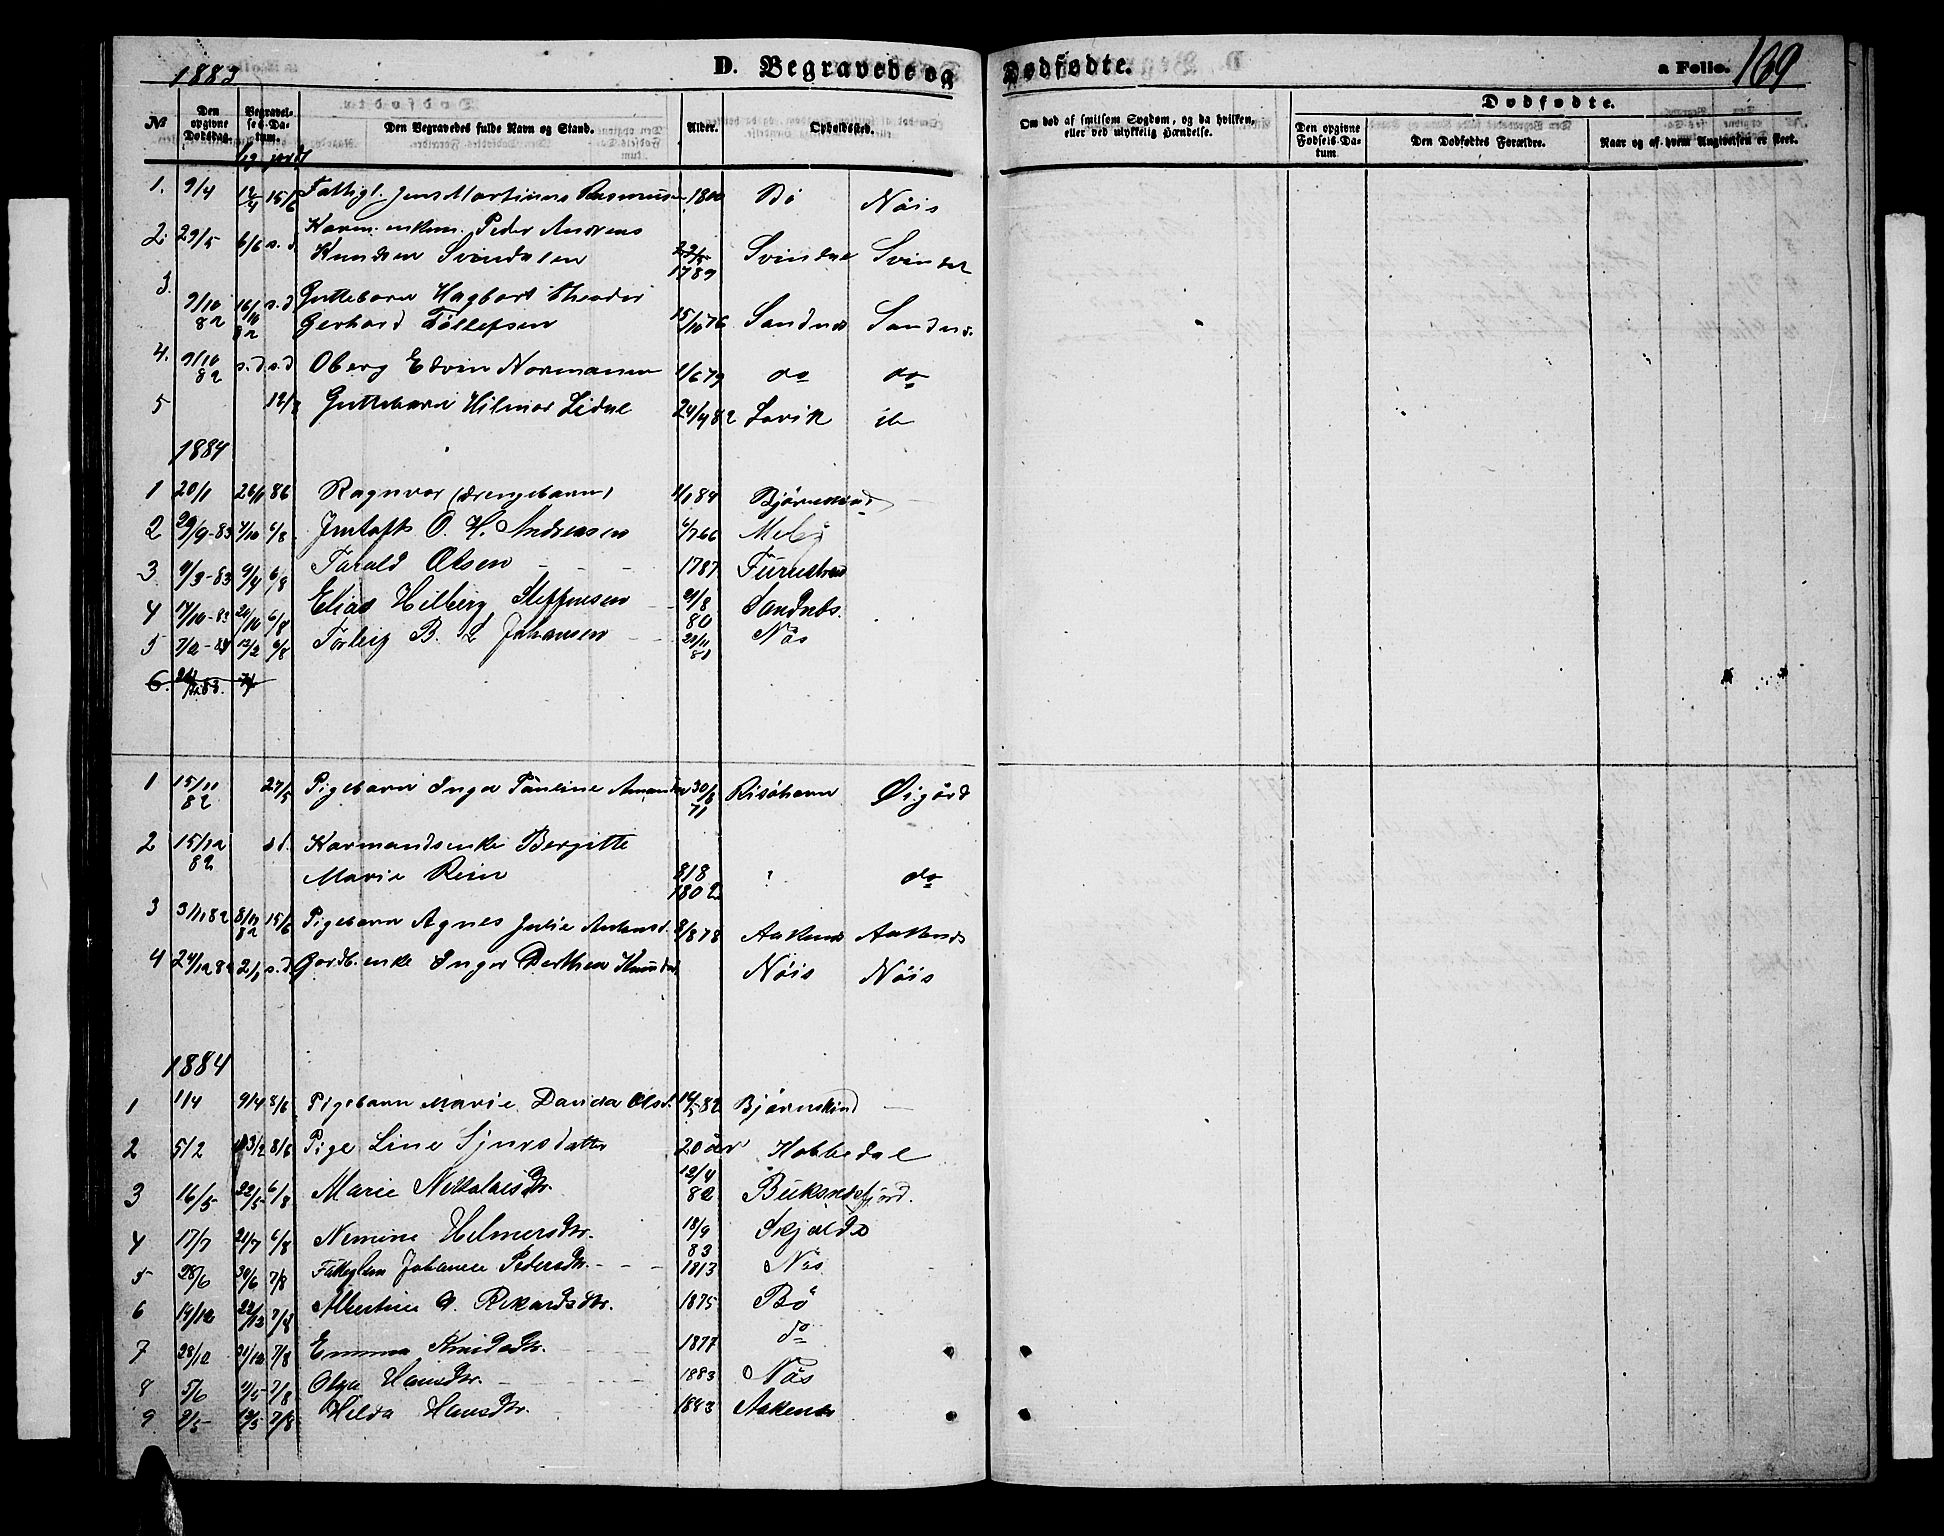 1883
D. Begravede og Dødfødte.
a Folio. 169
No
Den opgivne Dødsdag.
Begravelses-Datum.
Den Begravedes fulde Navn og Stand.
Alder.
Opholdssted.
Om død af smitsom Sygdom, og da hvilken, eller ved ulykkelig Hændelse.
Dødfødte.
Den opgivne Fødsels-Datum.
Den Dødfødtes Forældre.
Naar og af hvem Angivelsen er skeet.
1. 9/4 12/4 15/6 Fattigl. Jens Martinus Rasmussen 1800 Bö Nöis
2. 29/5 6/6 s. d. Karm. enkem. Peder Andreas
Knudsen Svindalen 1789 Svindal Svindal
3. 9/10 82 16/10 82 s.d Guttebarn Hagbart Theodor
Gerhard Tollefsen 15/10 76 Sandnes Sandnes.
4. 9/10 82 s.d s.d Oberg Edvin Normansen 1/6 79 do do
5 Guttebarn Hilmar Lidal 24/9 82 Lovik ib
1884
1 20/1 26/1 86 Ragnvor (drengebarn) 1/1 84 Björnskind
2 29/9-83 4/10 6/8 O. H. Andreasen 6/7 66 Melö
3 4/3-83 9/4 6/8 Tarald Olsen 1787 Furustrand
4 17/10-83 20/10 6/8 Elias Hilberg Steffensen 21/8 80 Sandnæs.
5 7/2-84 12/2 6/8 Torleif B. L Johansen 21/11 81 Nös
6.
1 15/11 82 27/5 Pigebarn Inga Pauline 30/6 71 Risöhavn Öigård
2 15/12 82 s d. Karmandsenke Bergitte
Marie Rein 8/8 1802 ? do
3 3/11 82 8/11 82 15/6 Pigebarn Agnes Julie Antonsd. 9/8 78 Aakenes Aakenes
4 24/12 82 2/1 s.d. Gardb. enke Inger Dorthea Knudsd. Nöis Nöis
1884
1 1/4 9/4 8/6 Pigebarn Marie Danida Olsd. 14/5-82 Björnskind
2 5/2 13/2 8/6 Pige Line Sjursdatter 20 år Hobbedal
3 16/5 22/5 6/8 Marie Nikolaisdtr. 12/4 82 Buksnesfjord.
4 17/7 21/7 6/8 Nemine Helmersdtr. 18/9 83 Skjolde
5 28/6 30/6 7/8 Fattiglem Johanne Pedersdtr. 1813 Nös
6 19/12 22/12 7/8 Albertine O. Rikardsdtr. 1875 Bö
7 28/12 31/12 7/8 Emma Knudsdtr. 1877 do
8 5/6 7/8 Olga Hansdtr. 1883 Nös
9 9/5 12/5 7/8 Hilda Hansdtr. 1883 Aakenes